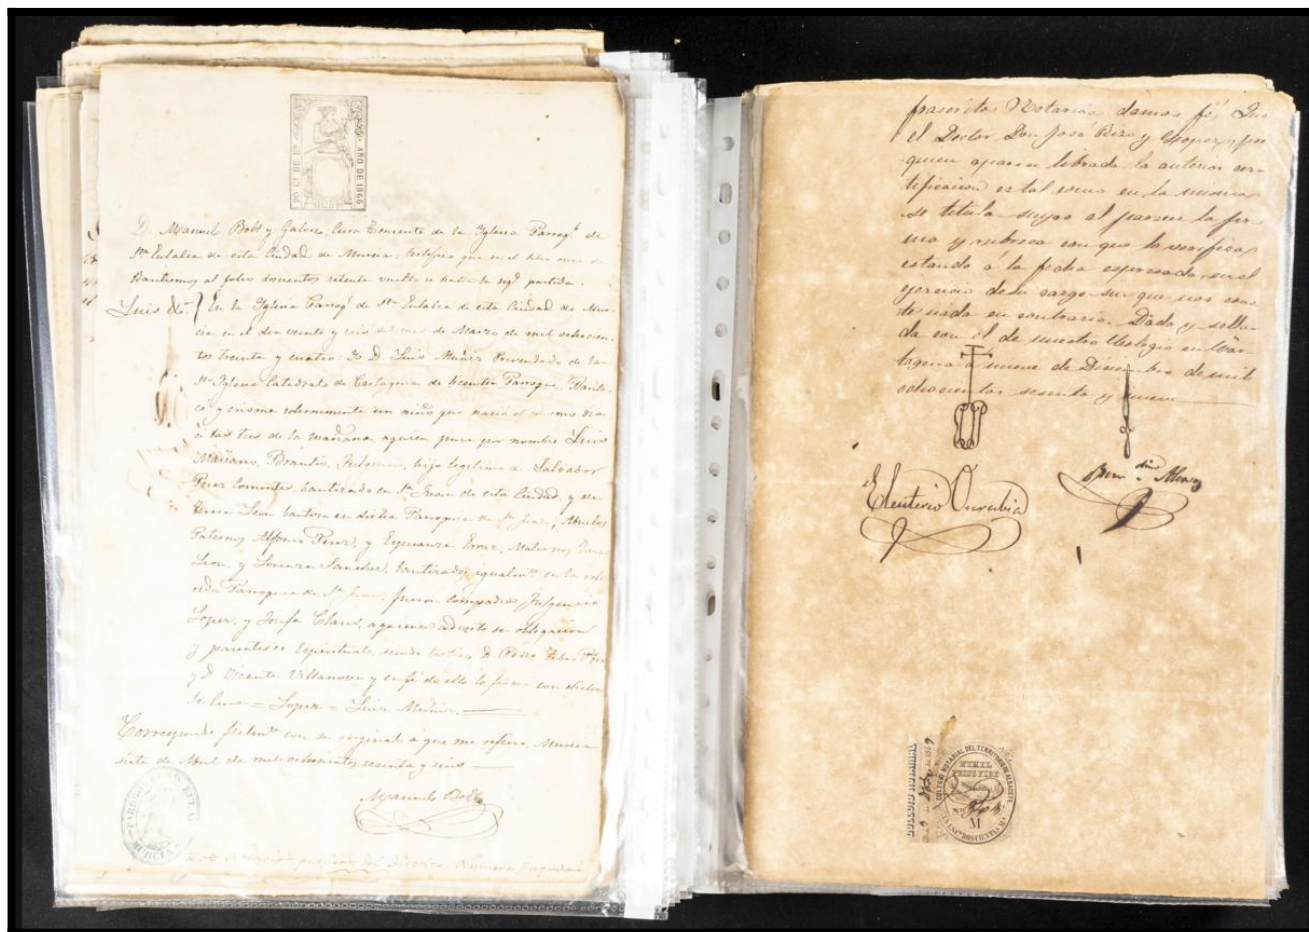 50 Cs. DE Eo. AÑO DE 1866
D. Manuel Bott y Galvez, Cura Ecónomo de la Yglesia Parroql. de
Sta. Eulalia de esta Ciudad de Murcia; Certifico que en el libro once de
Bautismos al folio doscientos setenta vuelto se halla la sigte. partida.
Luis &a. } En la Yglesia Parroql. de Sta. Eulalia de esta Ciudad de Mur-
cia en el dia veinte y seis del mes de Marzo de mil ochocien-
tos treinta y cuatro: Yo D. Luis Muñiz Prevendado de la
Sta. Yglesia Catedral de Cartagena de licencia Parroque, Bauti-
cé y crisme solemnemente un niño que nació el mismo dia
á las tres de la mañana, aquien puse por nombre Luis
Mariano, Braulio, Fulgencio, hijo legitimo de Salvador
Perez bautizado en Sn. Juan de esta Ciudad, y de
Teresa Leon bautiza en dicha Parroquia de Sn. Juan, Abuelos
Paternos Alfonso Perez, y Esperanza Maternos
Leon, y Lorenza Sanchez, bautizados igualmte. en la refe-
rida Parroquia de Sn. Juan, fueron Compadres Fulgencio
Lopez, y Josefa Claros, aquienes adverti su obligacion
y parentesco Espiritual, siendo testigos D. Pedro
y D. Vicente Villanova y en fé de ello lo firmo con dicho
Sr. Cura = Lopez = Luis Muñiz.
Corresponde fielmte. con su original á que me refiero, Murcia
siete de Abril de mil ochocientos sesenta y seis
Manuel Bott
PARROQUIA DE STA. EULALIA
MURCIA
frascritos Notarios, damos fé: Que
el Doctor Don José Rizo y Lopez, por
quien aparece librada la anterior cer-
tificacion es tal como en la misma
se titula suyos al parecer la fir-
ma y rubrica con que la verifica
estando á la fecha espresada en el
ejercicio de su cargo sin que nos cons-
te nada en contrario. Dado y sella-
da con el de nuestro Colegio en Car-
tagena á nueve de Diciembre de mil
ochocientos sesenta y nueve
Eleuterio
Berndino.
COLEGIO NOTARIAL
COLEGIO NOTARIAL DEL TERRITORIO DE ALBACETE
NIHIL PRIUS FIDE
M
DOSCIENTAS MS.